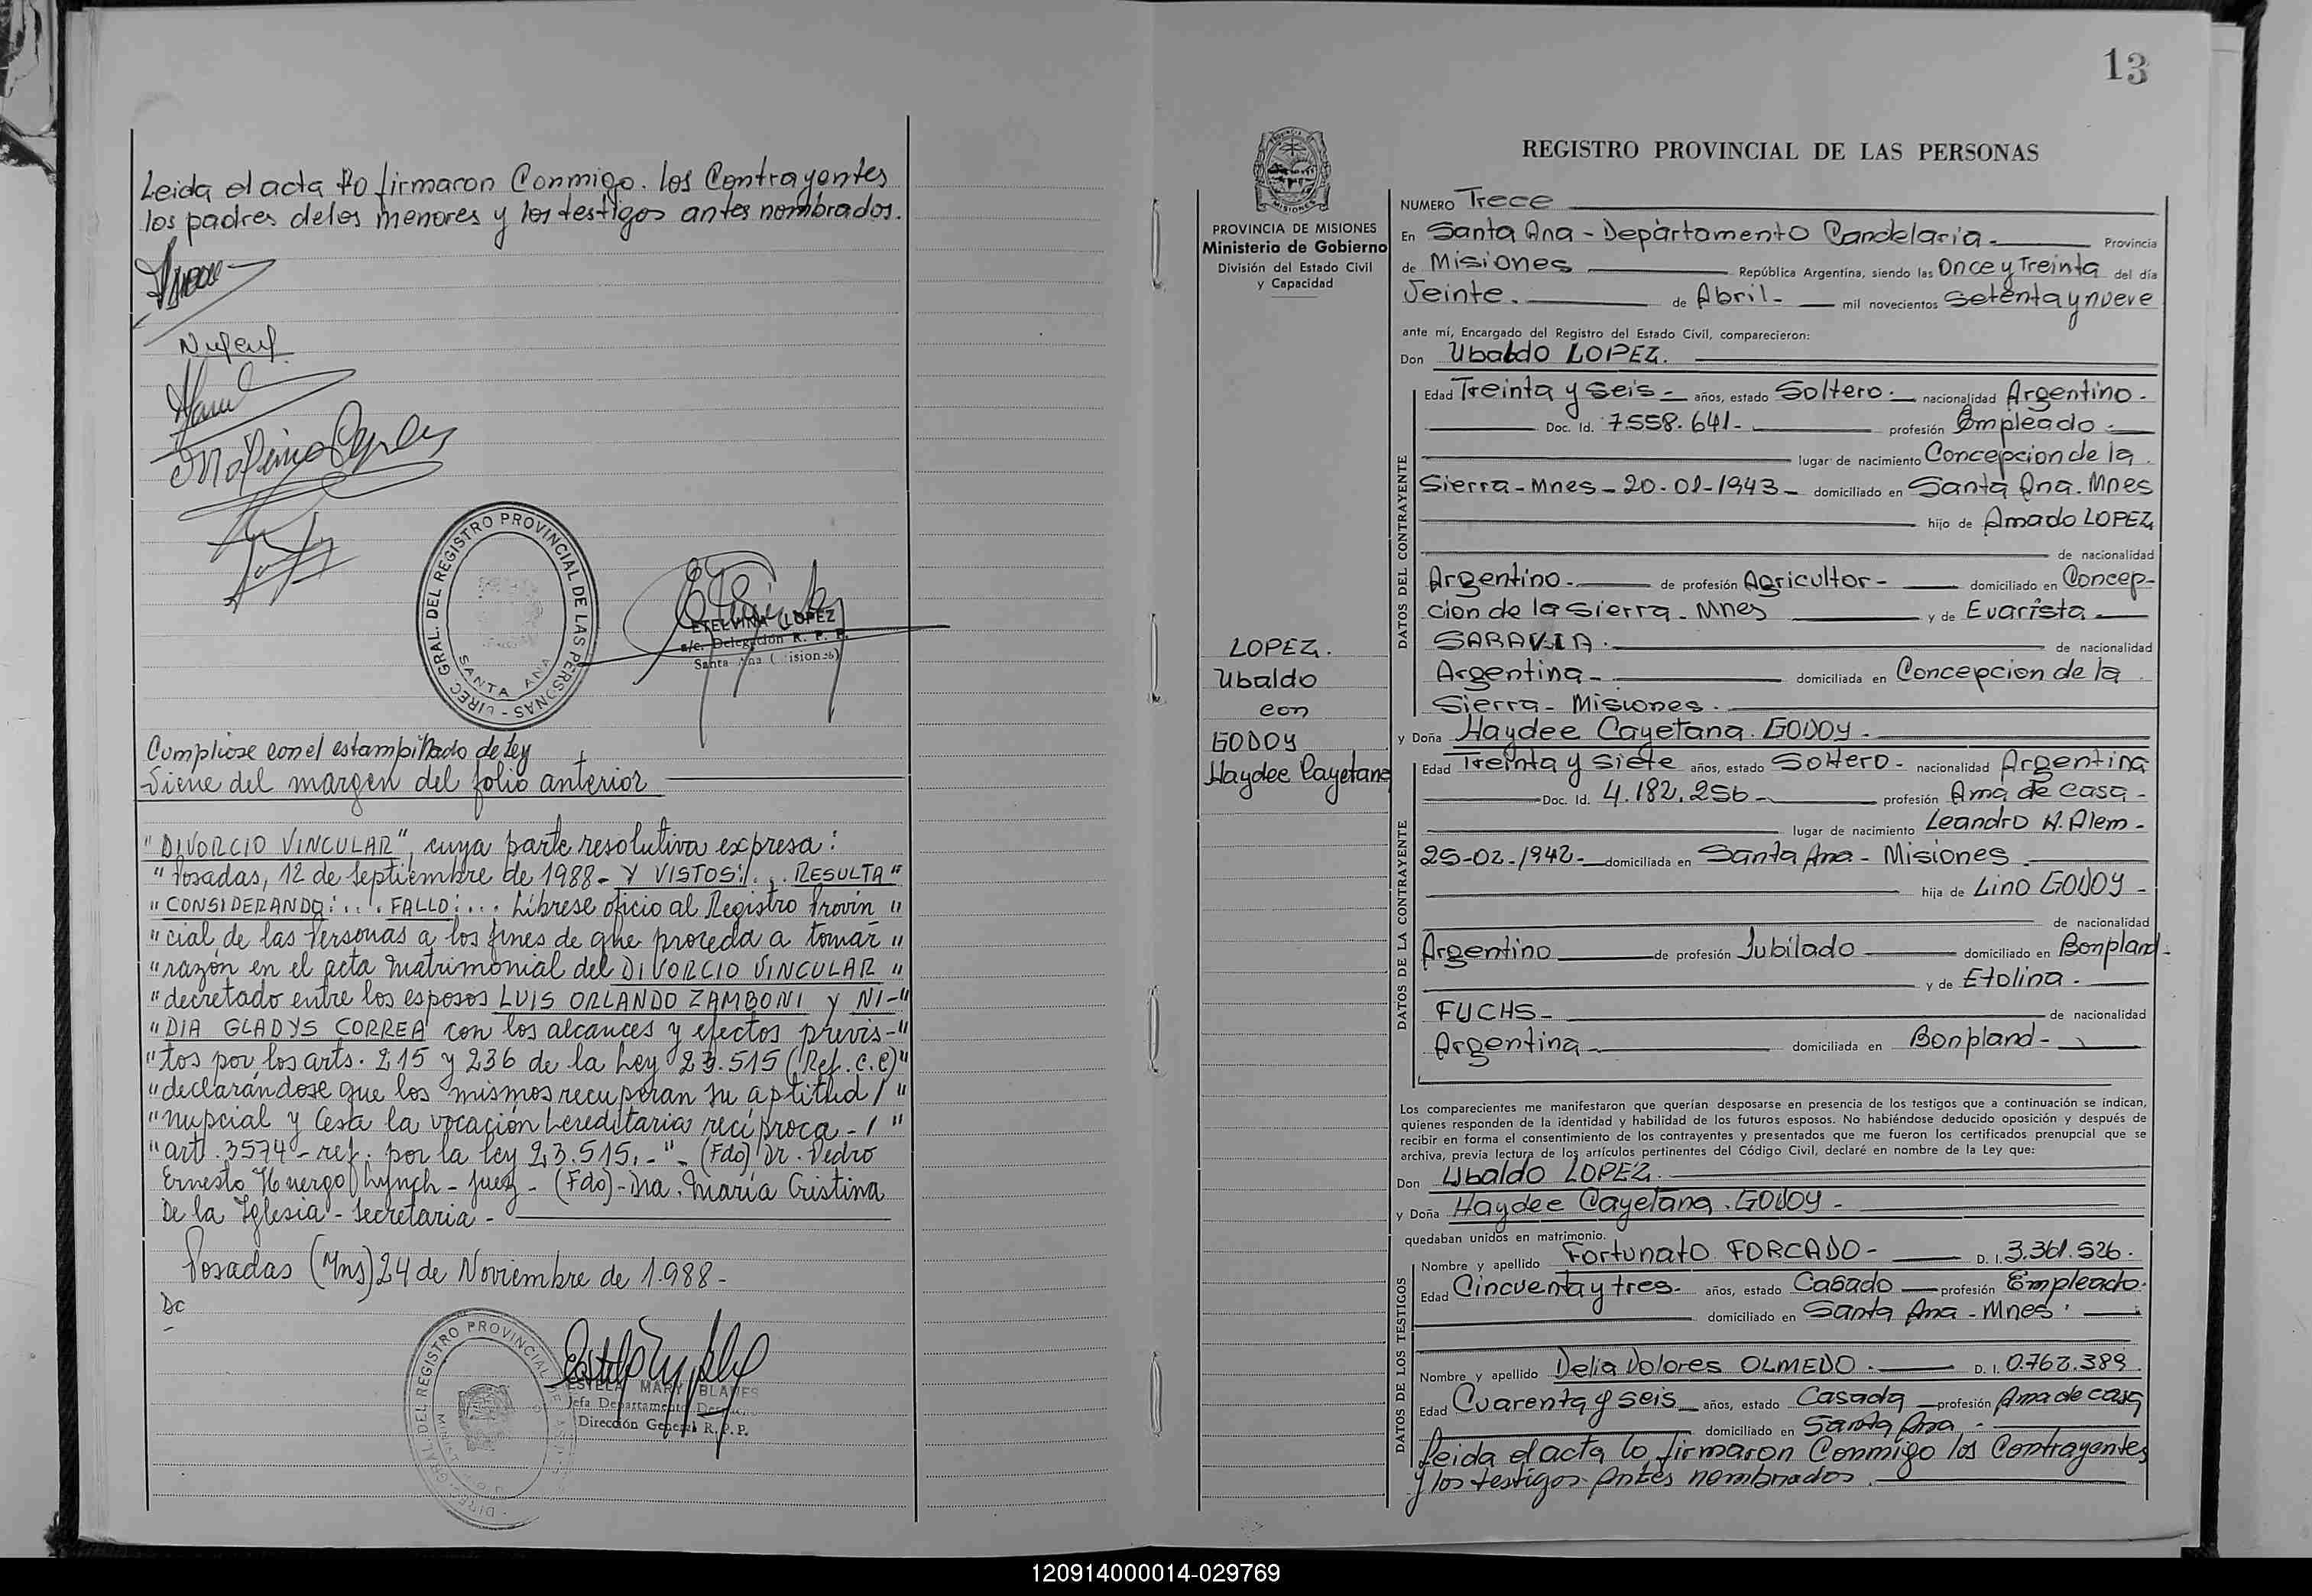 Leida el acta lo firmaron Conmigo. los Contrayentes
los padres de los menores y los testigos antes nombrados.
DIREC. GRAL. DEL REGISTRO PROVINCIAL DE LAS PERSONAS -
SANTA ANA
ETELVINA LOPEZ
a/c. Delegación R. P. P.
Santa Ana (Misiones)
Cumpliose con el estampillado de Ley
Viene del margen del folio anterior
"DIVORCIO VINCULAR", cuya parte resolutiva expresa:
"Posadas, 12 de Septiembre de 1988- Y VISTOS:... RESULTA"
"CONSIDERANDO:... FALLO:... Líbrese oficio al Registro Provin"
"cial de las Personas a los fines de que proceda a tomar"
"razón en el acta matrimonial del DIVORCIO VINCULAR"
"decretado entre los esposos LUIS ORLANDO ZAMBONI y NI-"
"DIA GLADYS CORREA con los alcances y efectos previs-"
"tos por los arts. 215 y 236 de la Ley 23.515 (Ref. C.C)"
"declarándose que los mismos recuperan su aptitud/"
"nupcial y Cesa la vocación hereditaria recíproca-/"
"art. 3574- ref. por la ley 23.515.-"- (Fdo) Dr. Pedro
Ernesto Huergo Lynch - Juez - (Fdo)- Dra. María Cristina
De la Iglesia - Secretaria -
Posadas (Mns) 24 de Noviembre de 1.988-
Dc
ESTELA MARY BLANES
Jefa Departamento Despacho
Dirección General R. P. P.
13
PROVINCIA DE MISIONES
Ministerio de Gobierno
División del Estado Civil
y Capacidad
LOPEZ.
Ubaldo
con
GODOY
Haydee Cayetana
REGISTRO PROVINCIAL DE LAS PERSONAS
NUMERO Trece
En Santa Ana - Departamento Candelaria- Provincia
de Misiones República Argentina, siendo las Once y Treinta del día
Veinte. de Abril- mil novecientos Setenta y nueve
ante mí, Encargado del Registro del Estado Civil, comparecieron:
Don Ubaldo LOPEZ.
DATOS DEL CONTRAYENTE
Edad Treinta y Seis- años, estado Soltero- nacionalidad Argentino-
Doc. Id. 7.558.641- profesión Empleado-
lugar de nacimiento Concepcion de la
Sierra-Mnes-20-01-1943- domiciliado en Santa Ana. Mnes
hijo de Amado LOPEZ
de nacionalidad
Argentino- de profesión Agricultor- domiciliado en Concep-
cion de la Sierra-Mnes y de Evarista-
SARAVIA. de nacionalidad
Argentina- domiciliada en Concepcion de la
Sierra- Misiones.
y Doña Haydee Cayetana. GODOY-
DATOS DE LA CONTRAYENTE
Edad Treinta y Siete años, estado Soltero- nacionalidad Argentina
Doc. Id. 4.182.256- profesión Ama de casa-
lugar de nacimiento Leandro N. Alem-
25-02-1942- domiciliada en Santa Ana- Misiones
hija de Lino GODOY-
de nacionalidad
Argentino de profesión Jubilado domiciliado en Bonpland-
y de Etolina.
FUCHS- de nacionalidad
Argentina- domiciliada en Bonpland-
Los comparecientes me manifestaron que querían desposarse en presencia de los testigos que a continuación se indican,
quienes responden de la identidad y habilidad de los futuros esposos. No habiéndose deducido oposición y después de
recibir en forma el consentimiento de los contrayentes y presentados que me fueron los certificados prenupcial que se
archiva, previa lectura de los artículos pertinentes del Código Civil, declaré en nombre de la Ley que:
Don Ubaldo LOPEZ.
y Doña Haydee Cayetana. GODOY-
quedaban unidos en matrimonio.
DATOS DE LOS TESTIGOS
Nombre y apellido Fortunato FORCADO- D. I. 3.361.526.
Edad Cincuenta y tres- años, estado Casado profesión Empleado.
domiciliado en Santa Ana - Mnes.
Nombre y apellido Delia Dolores OLMEDO. D. I. 0.762.389
Edad Cuarenta y seis años, estado Casada profesión Ama de casa
domiciliado en Santa Ana-
Leida el acta lo firmaron Conmigo los Contrayentes
y los testigos antes nombrados.
120914000014-029769